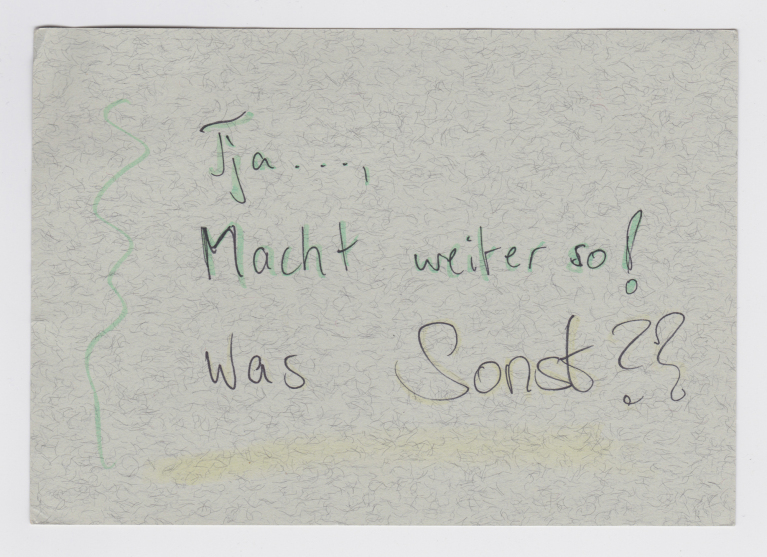 Tja....,
Macht weiter so!
Was Sonst??